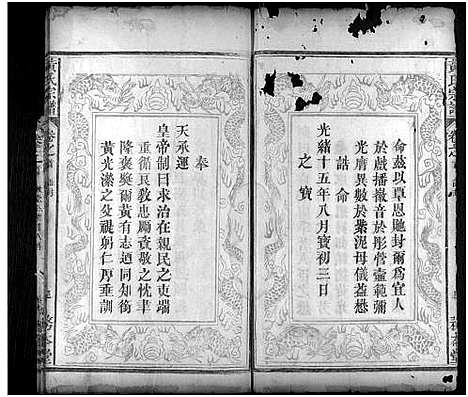 黃氏宗譜
卷之首
命茲以覃恩貤封爾爲宜人
於戲播徽音於彤管壼範彌
光膺異數於紫泥母儀益懋
誥命
光緒十五年八月寶初三日
之寶
奉
天承運
皇帝制曰求治在親民之吏端
重循良教忠勵資敬之忱聿
隆褒奬爾黃有志迺同知銜
黃光瀠之父禔躬仁厚垂訓
黃氏宗譜
卷之首
敦本堂